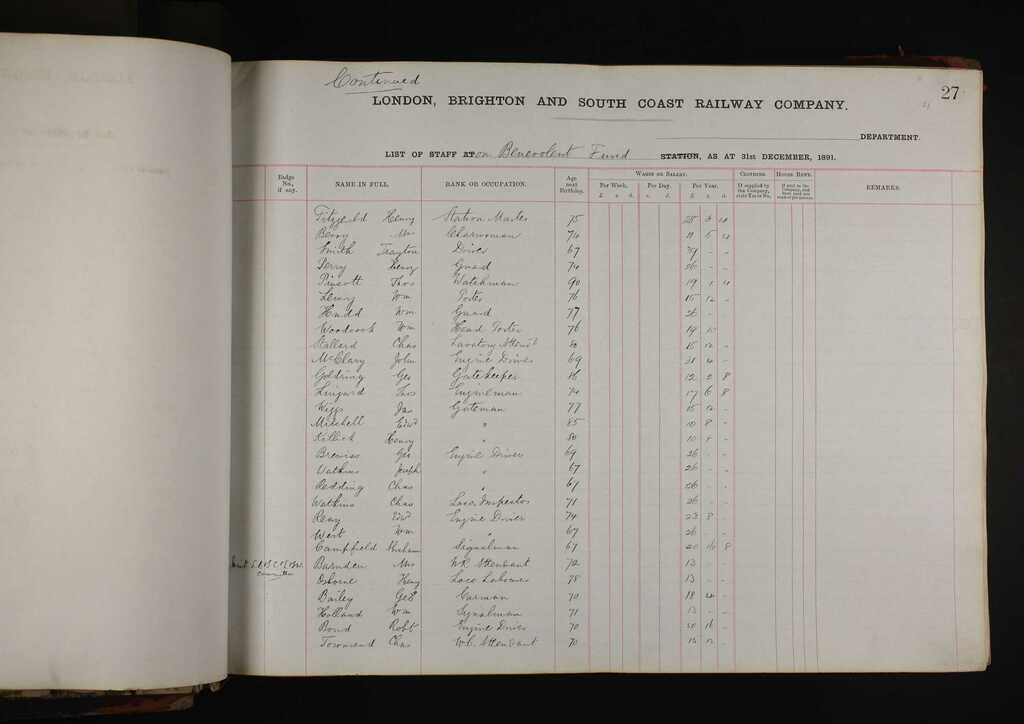 Continued
27
LONDON, BRIGHTON AND SOUTH COAST RAILWAY COMPANY.
DEPARTMENT.
LIST OF STAFF AT on Benevolent Fund STATION, AS AT 31st DECEMBER, 1891.
Badge No., if any. NAME IN FULL. RANK OR OCCUPATION. Age next Birthday. WAGES OR SALARY. Per Week. £ s. d. Per Day. s. d. Per Year. £ s. d. CLOTHING. If supplied by the Company, state Yes or No. HOUSE RENT. REMARKS.
Fitzgerald Henry Station Master 75
Berry Mrs Charwoman 74 11 5 4
Smith Trayton Driver 67 39 - -
Perry Henry Guard 74 26 - -
Pinsott Thos Watchman 90 19 1 4
Wm Porter 76 15 12 -
Hudd Wm Guard 77 26 - -
Woodcock Wm Head Porter 76 19 10 -
Stallard Chas Lavatory Attendt 80 15 12 -
McClary John Engine Driver 69 31 4 -
Goldring Geo Gatekeeper 86 12 2 8
Lingard Engineman 74 17 6 8
Wigg Jas Gateman 77 15 12 -
Mitchell Edwd " 85 10 8 -
Killick Henry " 80 10 8 -
Geo Engine Driver 69 26 - -
Watkins Joseph " 67 26 - -
Redding Chas " 67 26 - -
Watkins Chas Loco. Inspector 71 26 - -
Edwd Engine Driver 74 23 8 -
West Wm " 67 26 - -
Campfield Abraham Signalman 67 20 16 8
Committee Barnden Mrs WR Attendant 72 13 - -
Osborne Henry Loco Labourer 78 13 - -
Bailey Geo Carman 70 18 4 -
Holland Wm Signalman 71 13 - -
Bond Robt Engine Driver 70 16 -
Townsend Chas W.C. Attendant 70 15 12 -